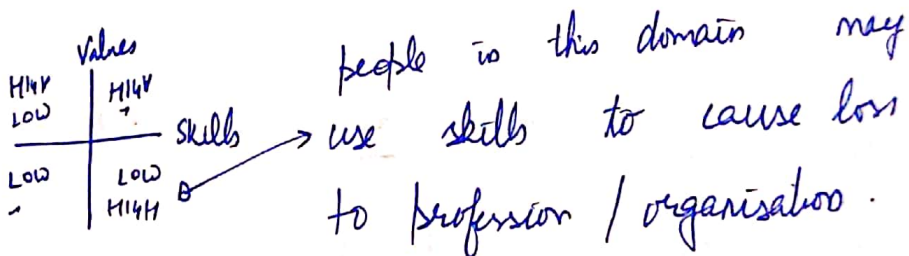 Values
HIGH HIGH
LOW "
Skills
LOW LOW
" HIGH
people in this domain may
→ use skills to cause loss
to profession / organisation.